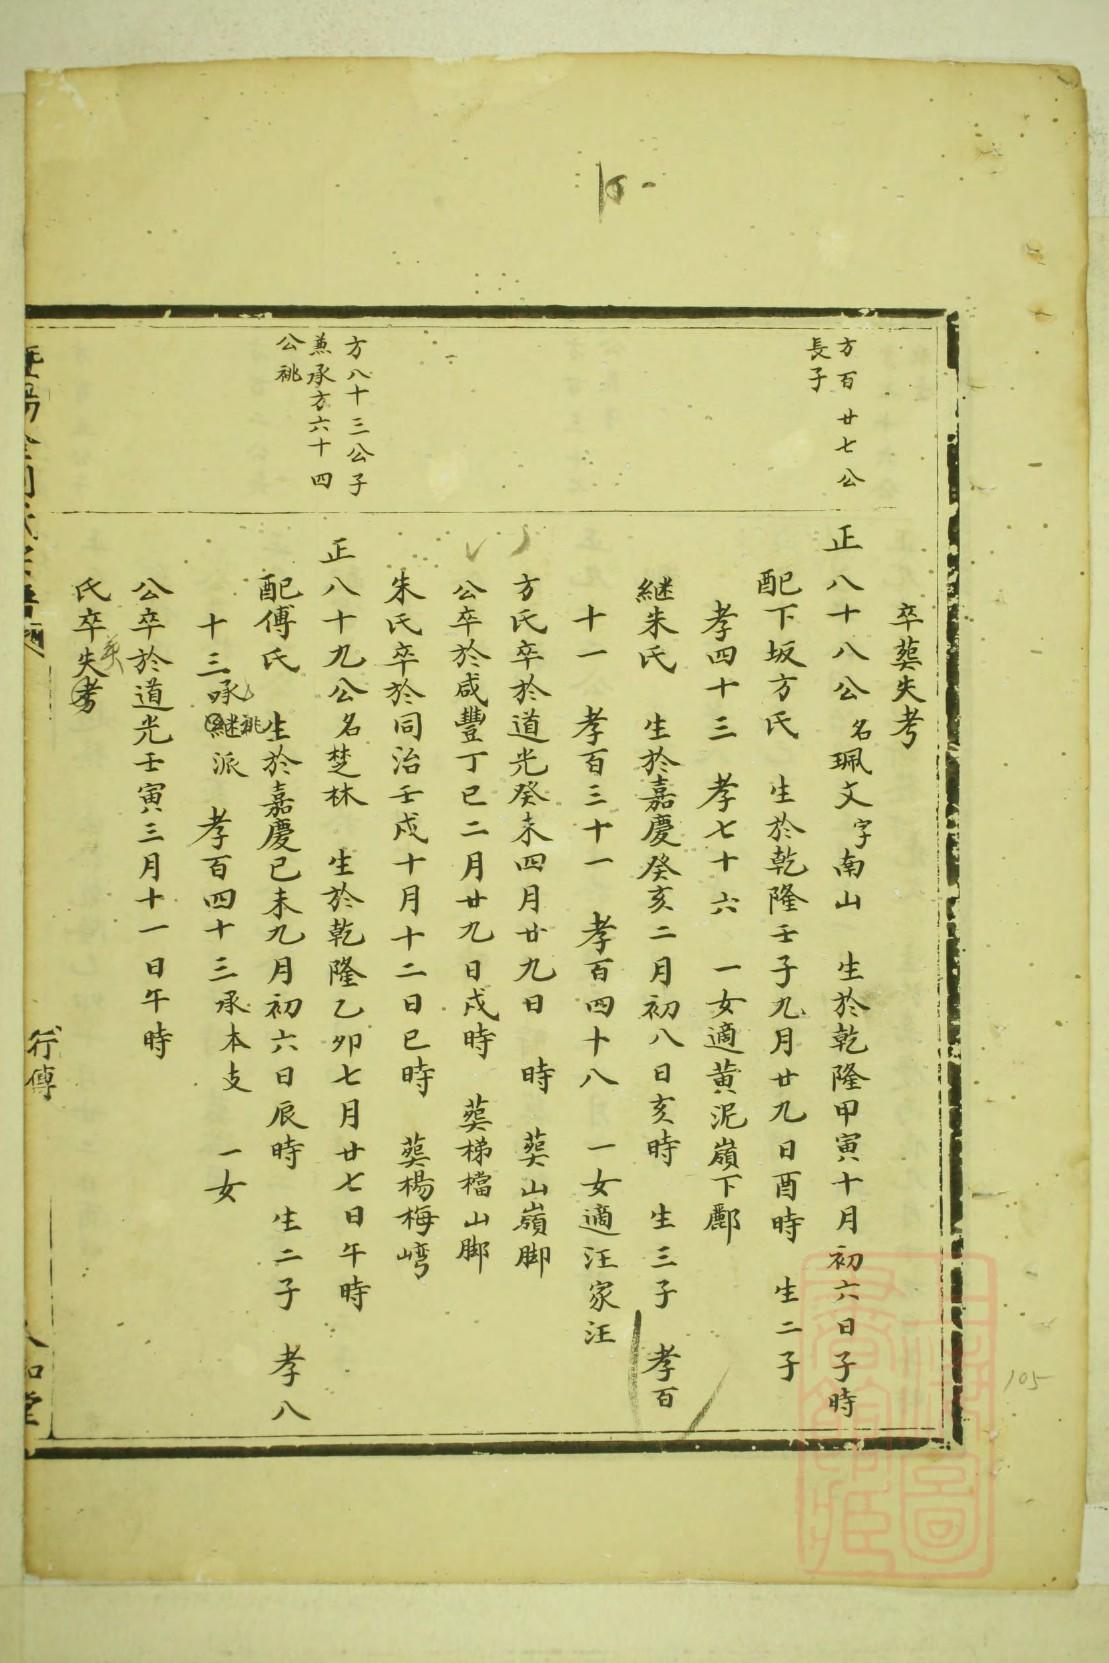 卒葬失考
方百廿七公
長子
正八十八公名珮文字南山　生於乾隆甲寅十月初六日子時
配下坂方氏　生於乾隆壬子九月廿九日酉時　生二子
孝四十三　孝七十六　一女適黄泥嶺下酈
継朱氏　生於嘉慶癸亥二月初八日亥時　生三子　孝百
十一　孝百三十一　孝百四十八　一女適汪家汪
方氏卒於道光癸未四月廿九日　時　葬山嶺脚
公卒於咸豐丁巳二月廿九日戌時　葬梯檔山脚
朱氏卒於同治壬戌十月十二日巳時　葬楊梅嶨
方八十三公子
兼承方六十四
公祧
正八十九公名楚林　生於乾隆乙卯七月廿七日午時
配傅氏　生於嘉慶己未九月初六日辰時　生二子　孝八
十三承継祧派　孝百四十三承本支　一女
公卒於道光壬寅三月十一日午時
氏卒葬失考
行傳
105